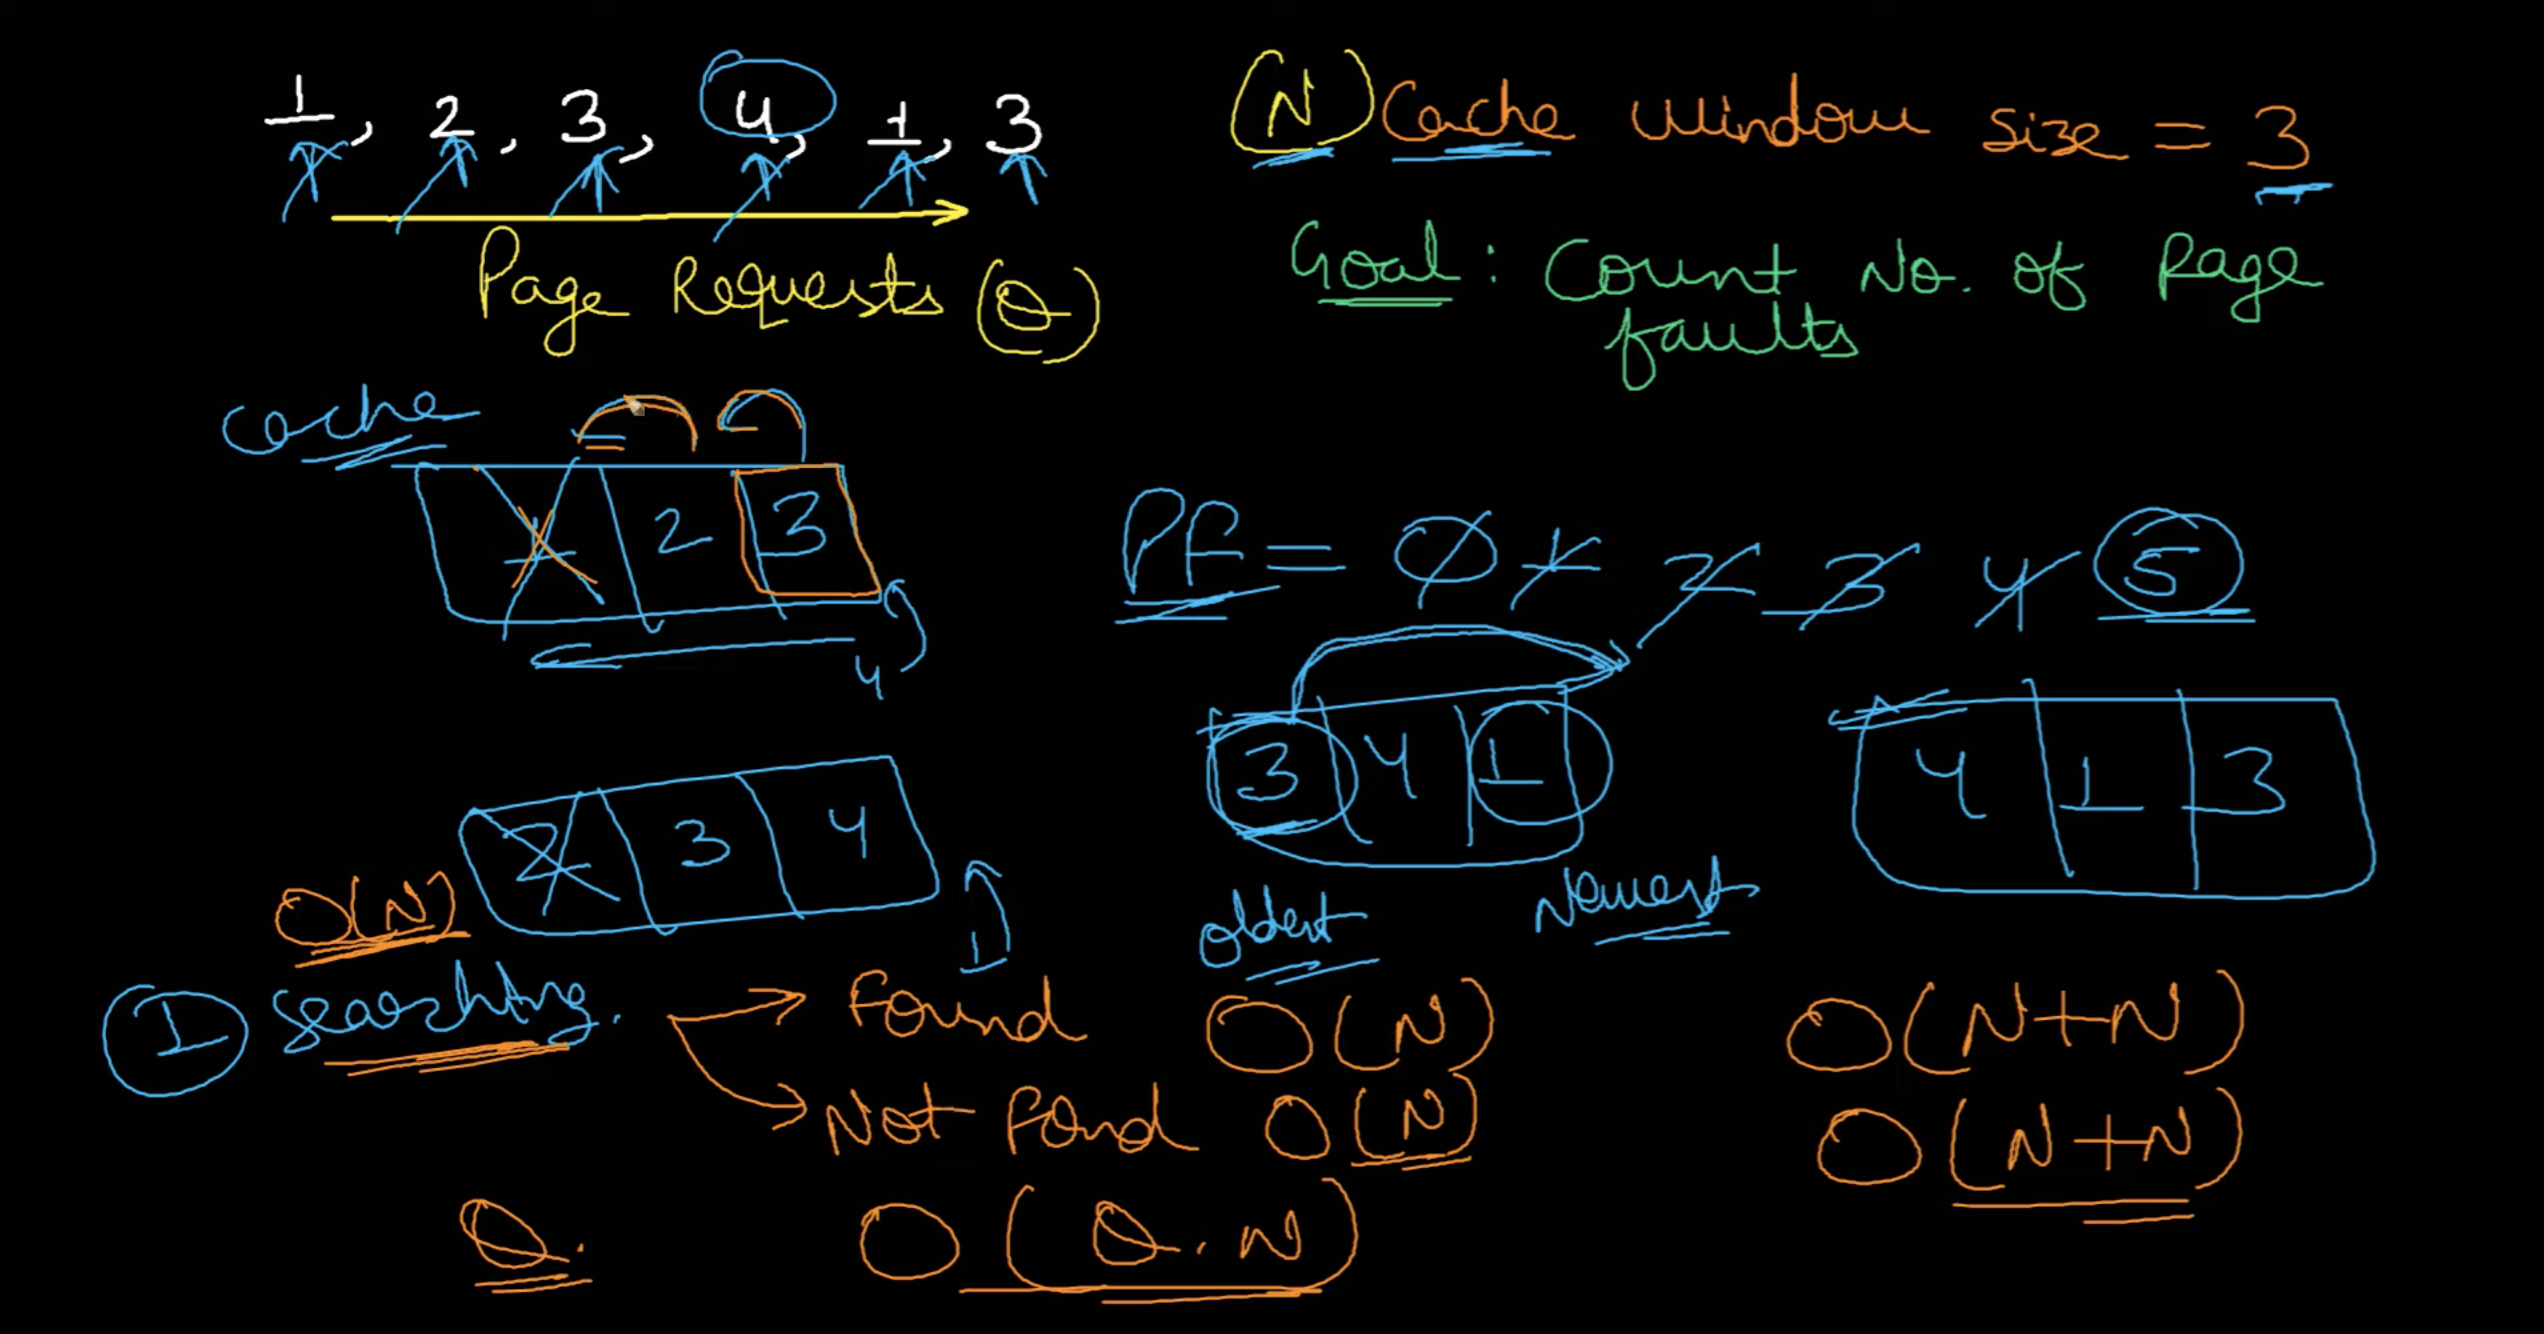 1, 2, 3, 4, 1, 3
Page Requests (Q)
(N) Cache Window size = 3
Goal: Count No. of Page
faults
Cache
1 2 3
4
PF = 0 1 2 3 4 5
2 3 4
1
3 4 1
oldest Newest
4 1 3
O(N)
1 Searching.
Found O(N) O(N+N)
Not Fond O(N) O(N+N)
Q. O(Q.N)